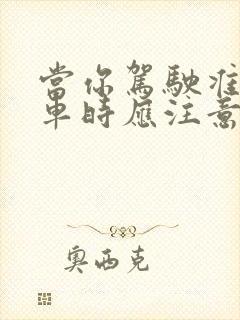 當你駕駛準
車時應注意
奧西克